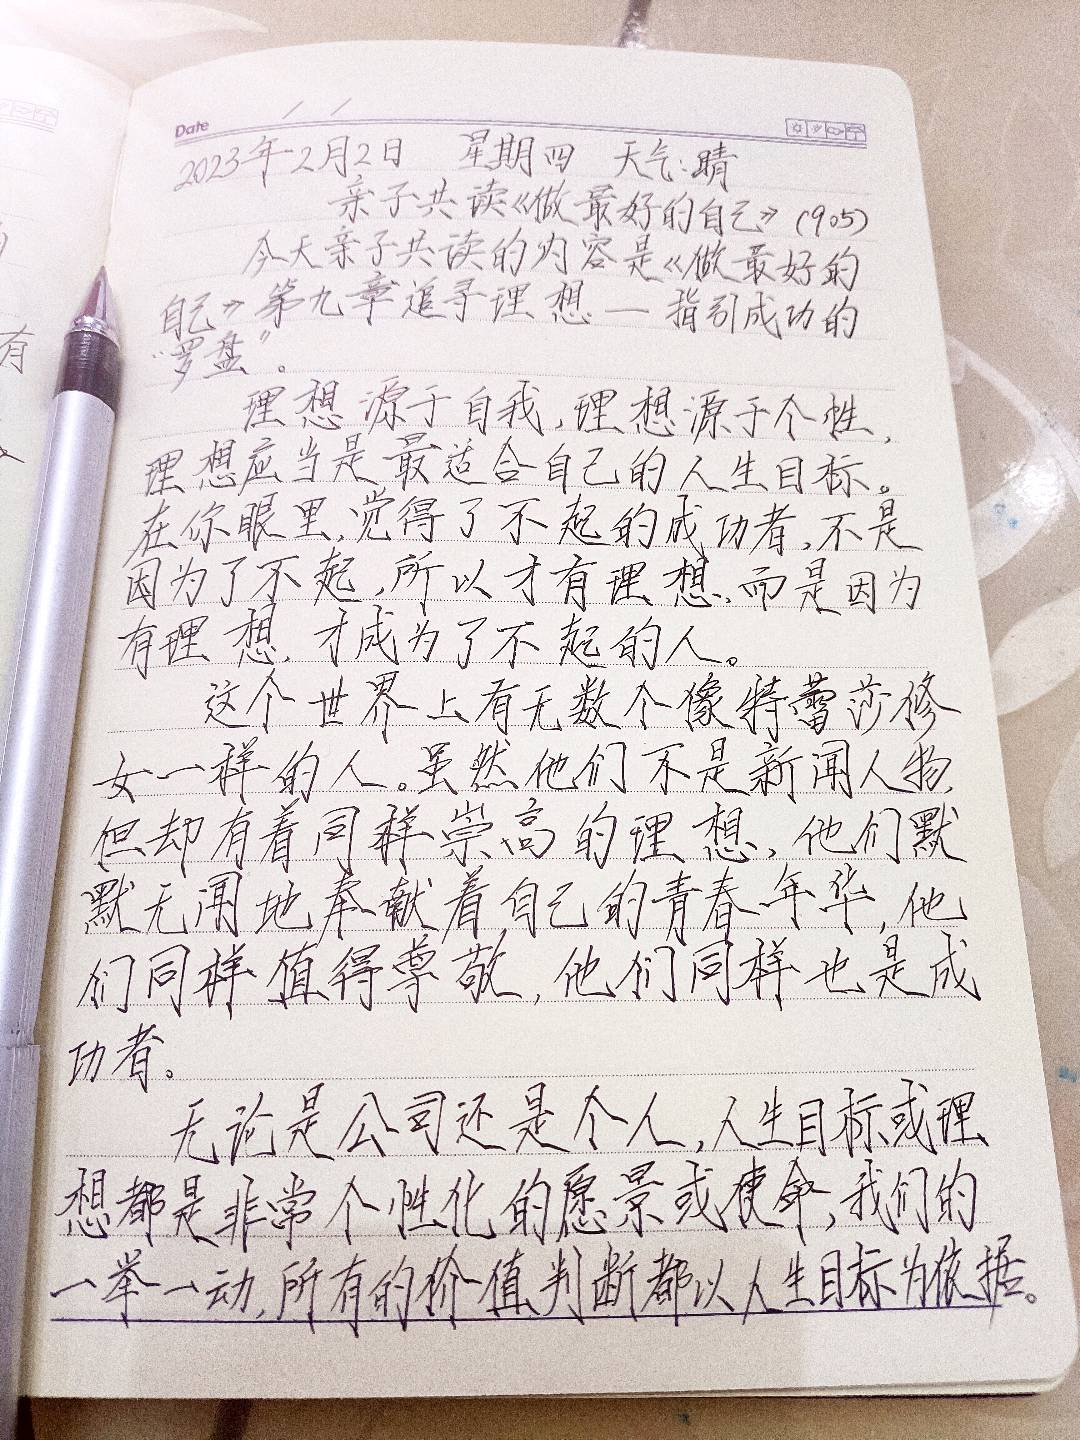 Date / /
2023年2月2日 星期四 天气:晴
亲子共读《做最好的自己》(905)
今天亲子共读的内容是《做最好的
自己》第九章追寻理想一指引成功的
“罗盘”。
理想源于自我,理想源于个性,
理想应当是最适合自己的人生目标。
在你眼里,觉得了不起的成功者,不是
因为了不起,所以才有理想,而是因为
有理想,才成为了不起的人。
这个世界上有无数个像特蕾莎修
女一样的人。虽然他们不是新闻人物,
但却有着同样崇高的理想,他们默
默无闻地奉献着自己的青春年华,他
们同样值得尊敬,他们同样也是成
功者。
无论是公司还是个人,人生目标或理
想都是非常个性化的愿景或使命,我们的
一举一动,所有的价值判断都以人生目标为依据。
有